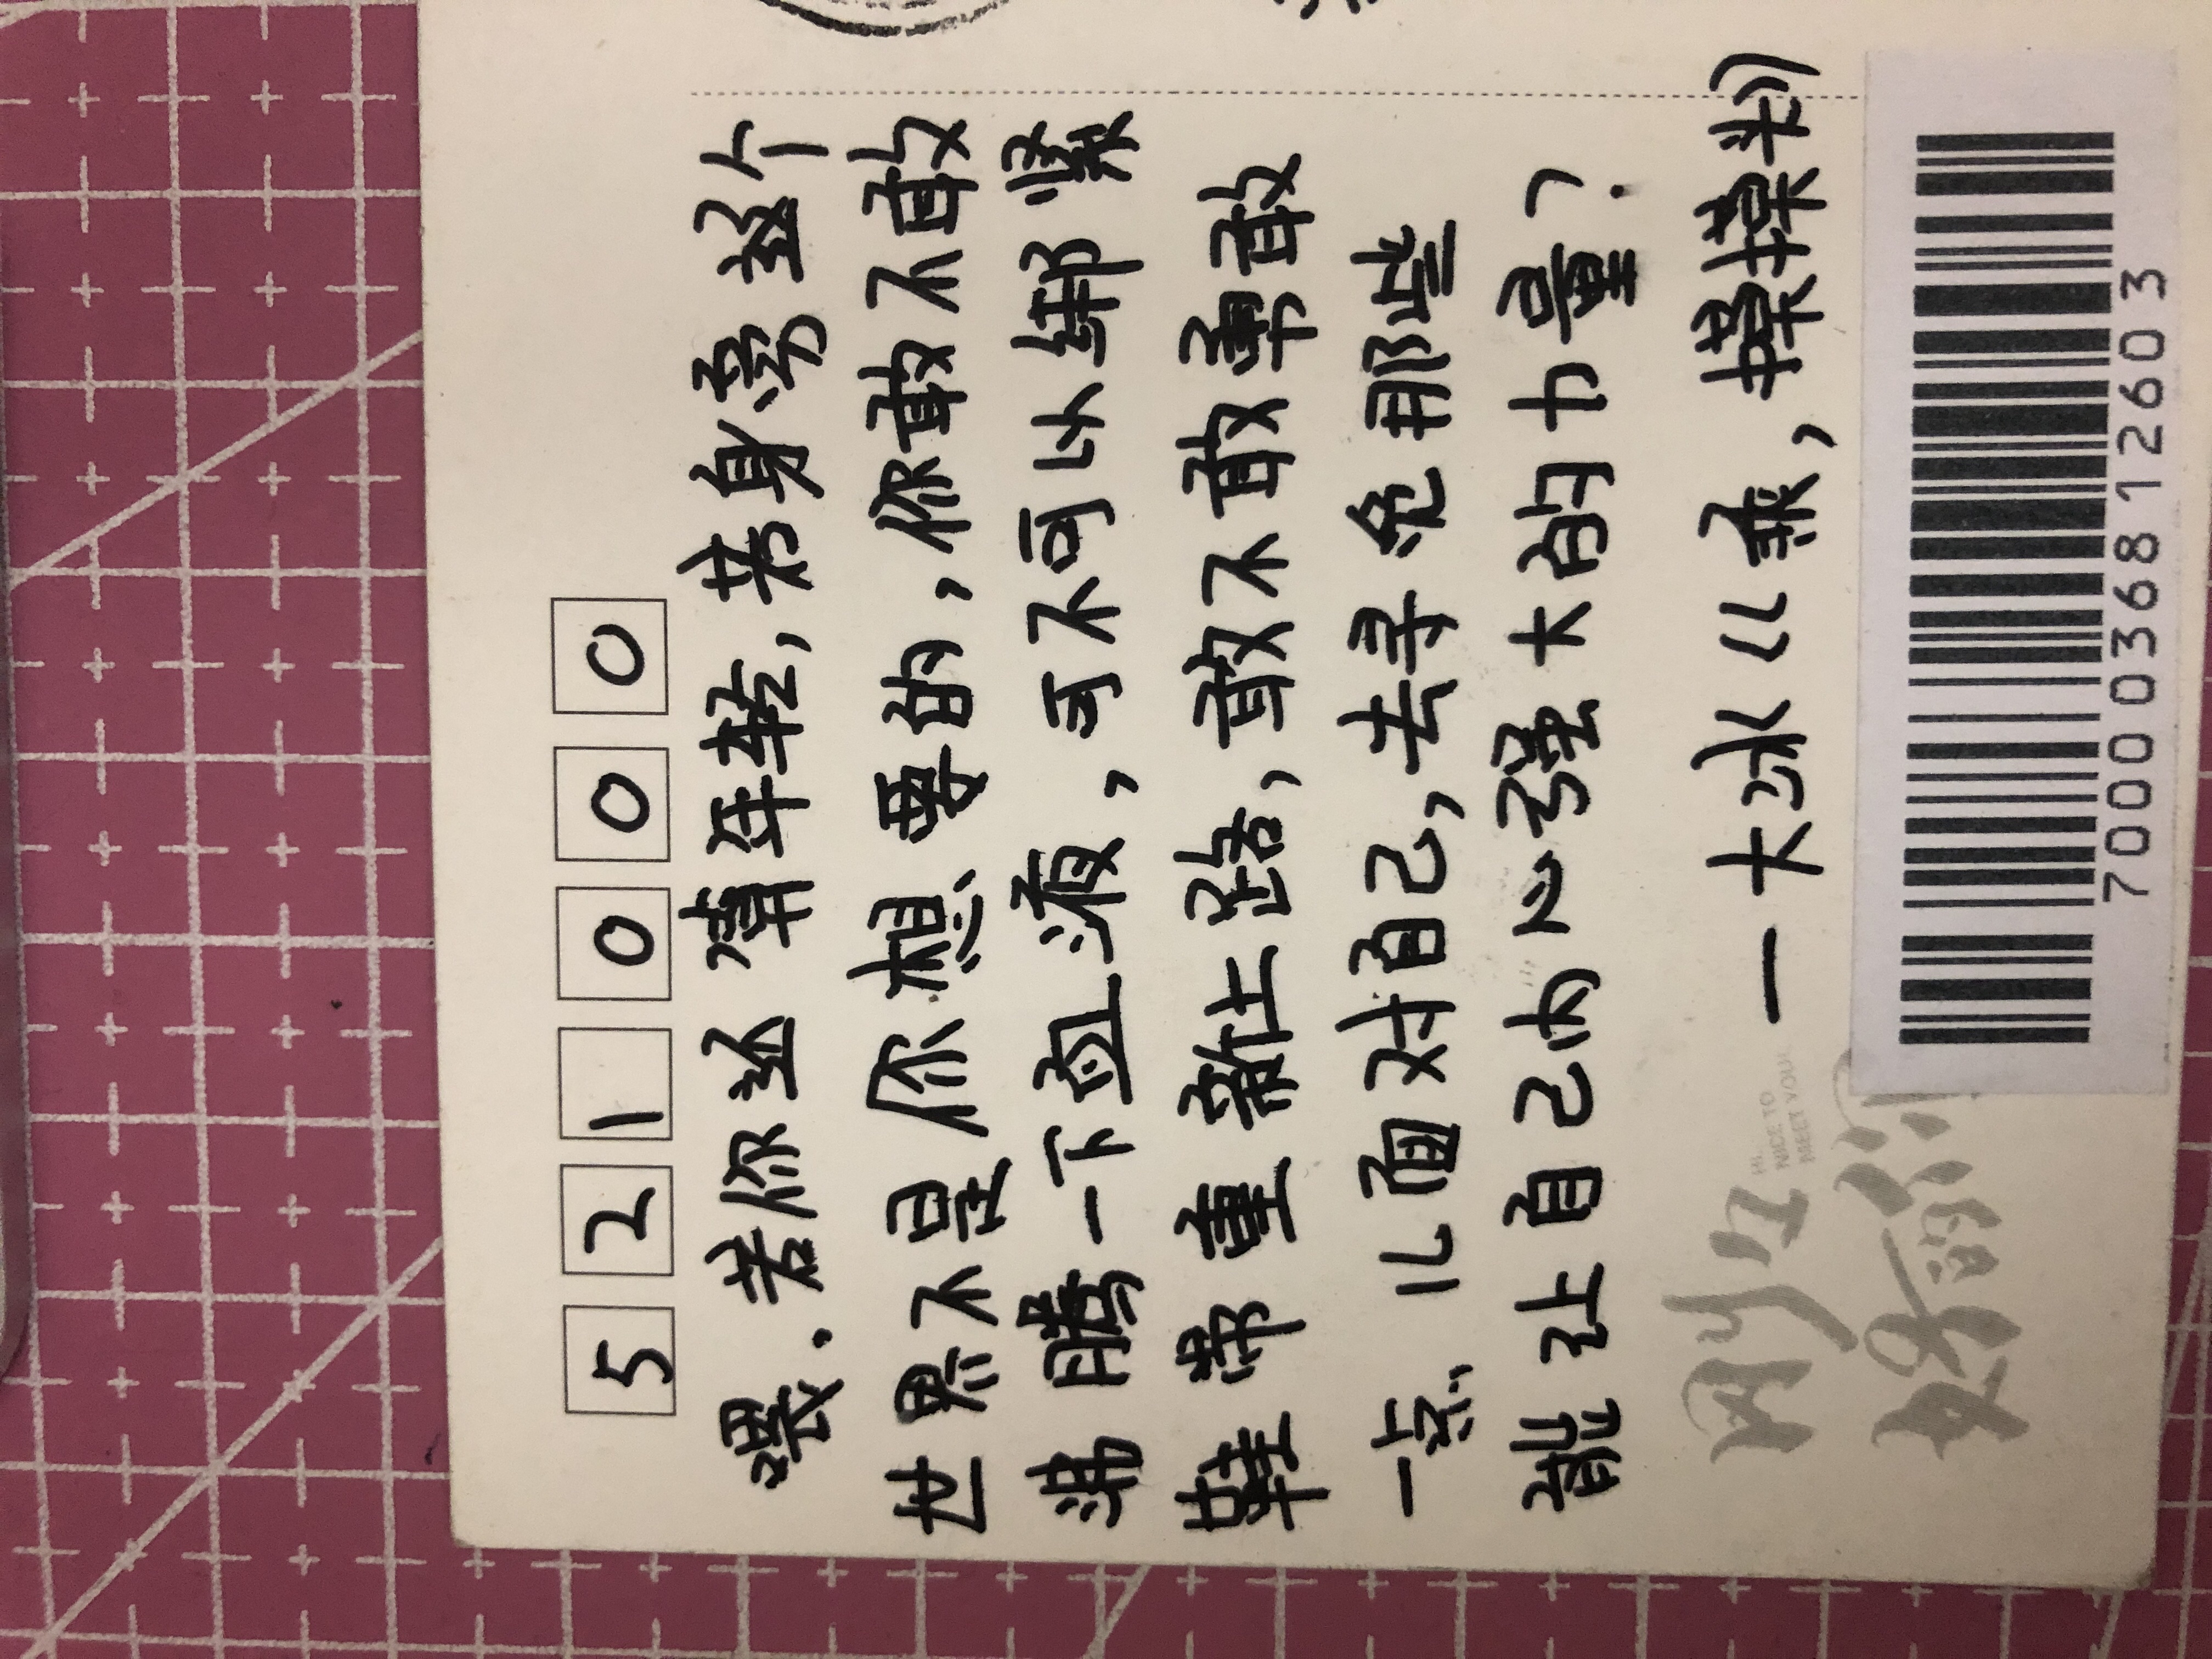 521000
喂.若你还算年轻,若身旁这个
世界不是你想要的,你敢不敢
沸腾一下血液,可不可以绑紧
鞋带重新上路,敢不敢勇敢
一点儿面对自己,去寻觅那些
能让自己内心强大的力量?
—大冰《乖,摸摸头》
HI,
NICE TO
MEET YOU
7000036812603